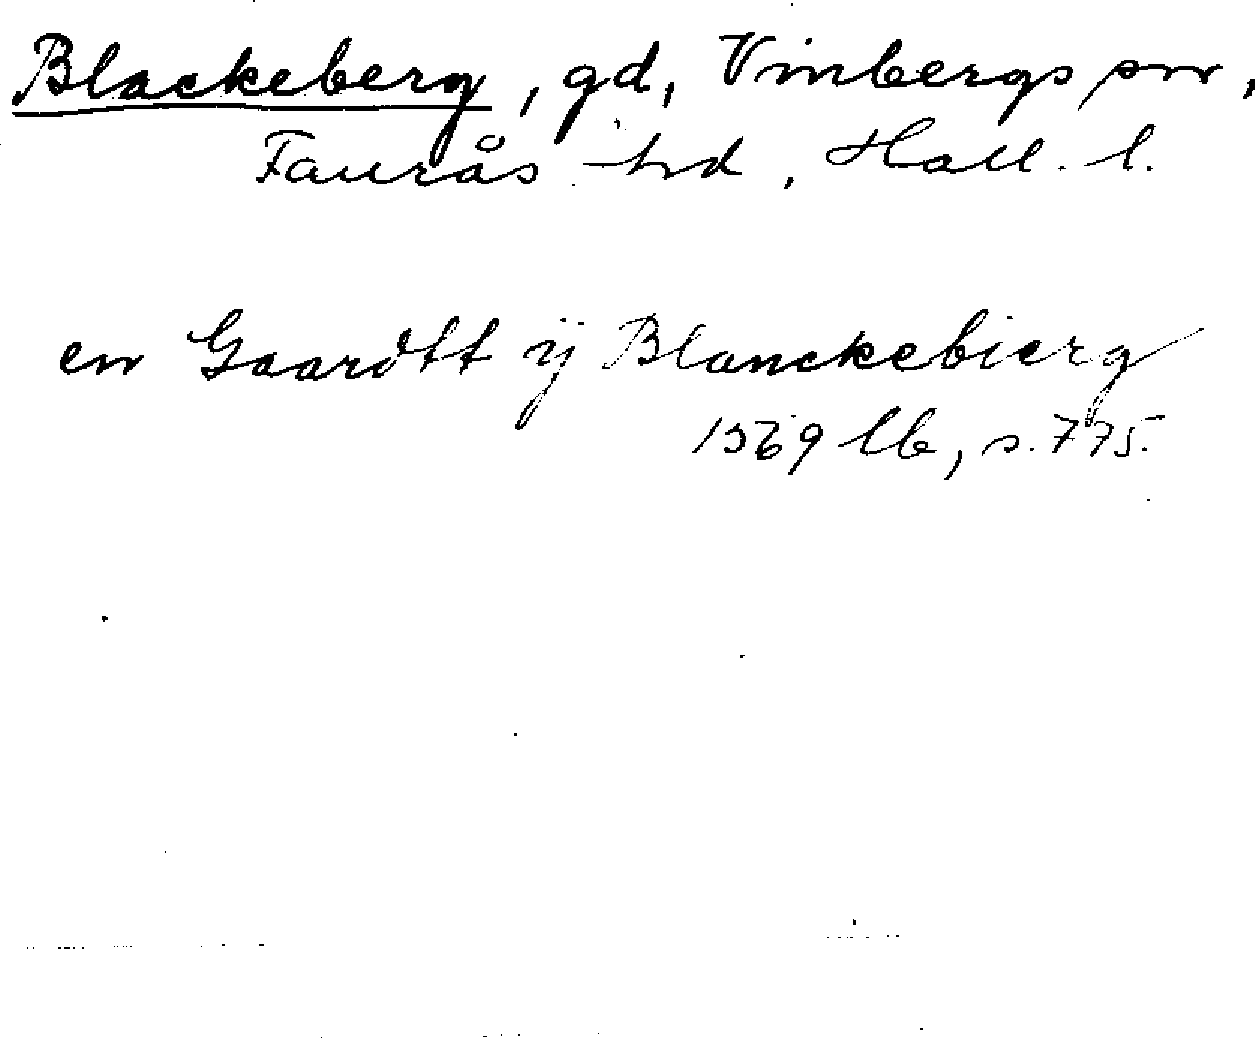 Blackeberg, gd, Vinbergs snr,
Faurås hd, Hall. l.
en Gaardtt ij Blanckebierg
1569 lb, s. 775.